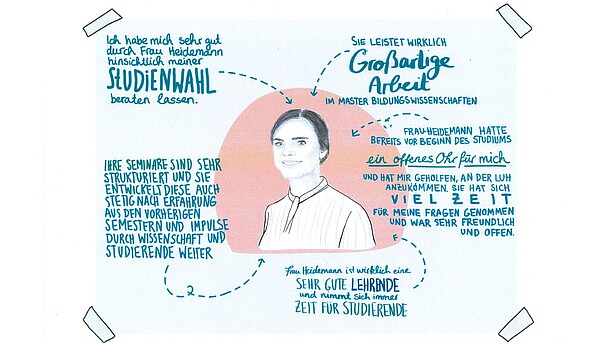 Ich habe mich sehr gut
durch Frau Heidemann
hinsichtlich meiner
STUDIENWAHL
beraten lassen.
SIE LEISTET WIRKLICH
Großartige
Arbeit
IM MASTER BILDUNGSWISSENSCHAFTEN
FRAU HEIDEMANN HATTE
BEREITS VOR BEGINN DES STUDIUMS
ein offenes Ohr für mich
UND HAT MIR GEHOLFEN, AN DER LUH
ANZUKOMMEN. SIE HAT SICH
VIEL ZEIT
FÜR MEINE FRAGEN GENOMMEN
UND WAR SEHR FREUNDLICH
UND OFFEN.
IHRE SEMINARE SIND SEHR
STRUKTURIERT UND SIE
ENTWICKELT DIESE AUCH
STETIG NACH ERFAHRUNG
AUS DEN VORHERIGEN
SEMESTERN UND IMPULSE
DURCH WISSENSCHAFT UND
STUDIERENDE WEITER
Frau Heidemann ist wirklich eine
SEHR GUTE LEHRENDE
und nimmt sich immer
ZEIT FÜR STUDIERENDE